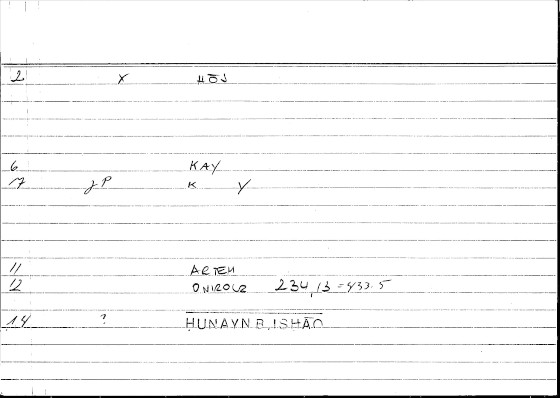 2 X HŌS
6 KAY
17 gP K Y
11 ARTEM
12 ONIROCR 234,13 = 433.5
14 ? ḤUNAYN B. ISḤĀQ